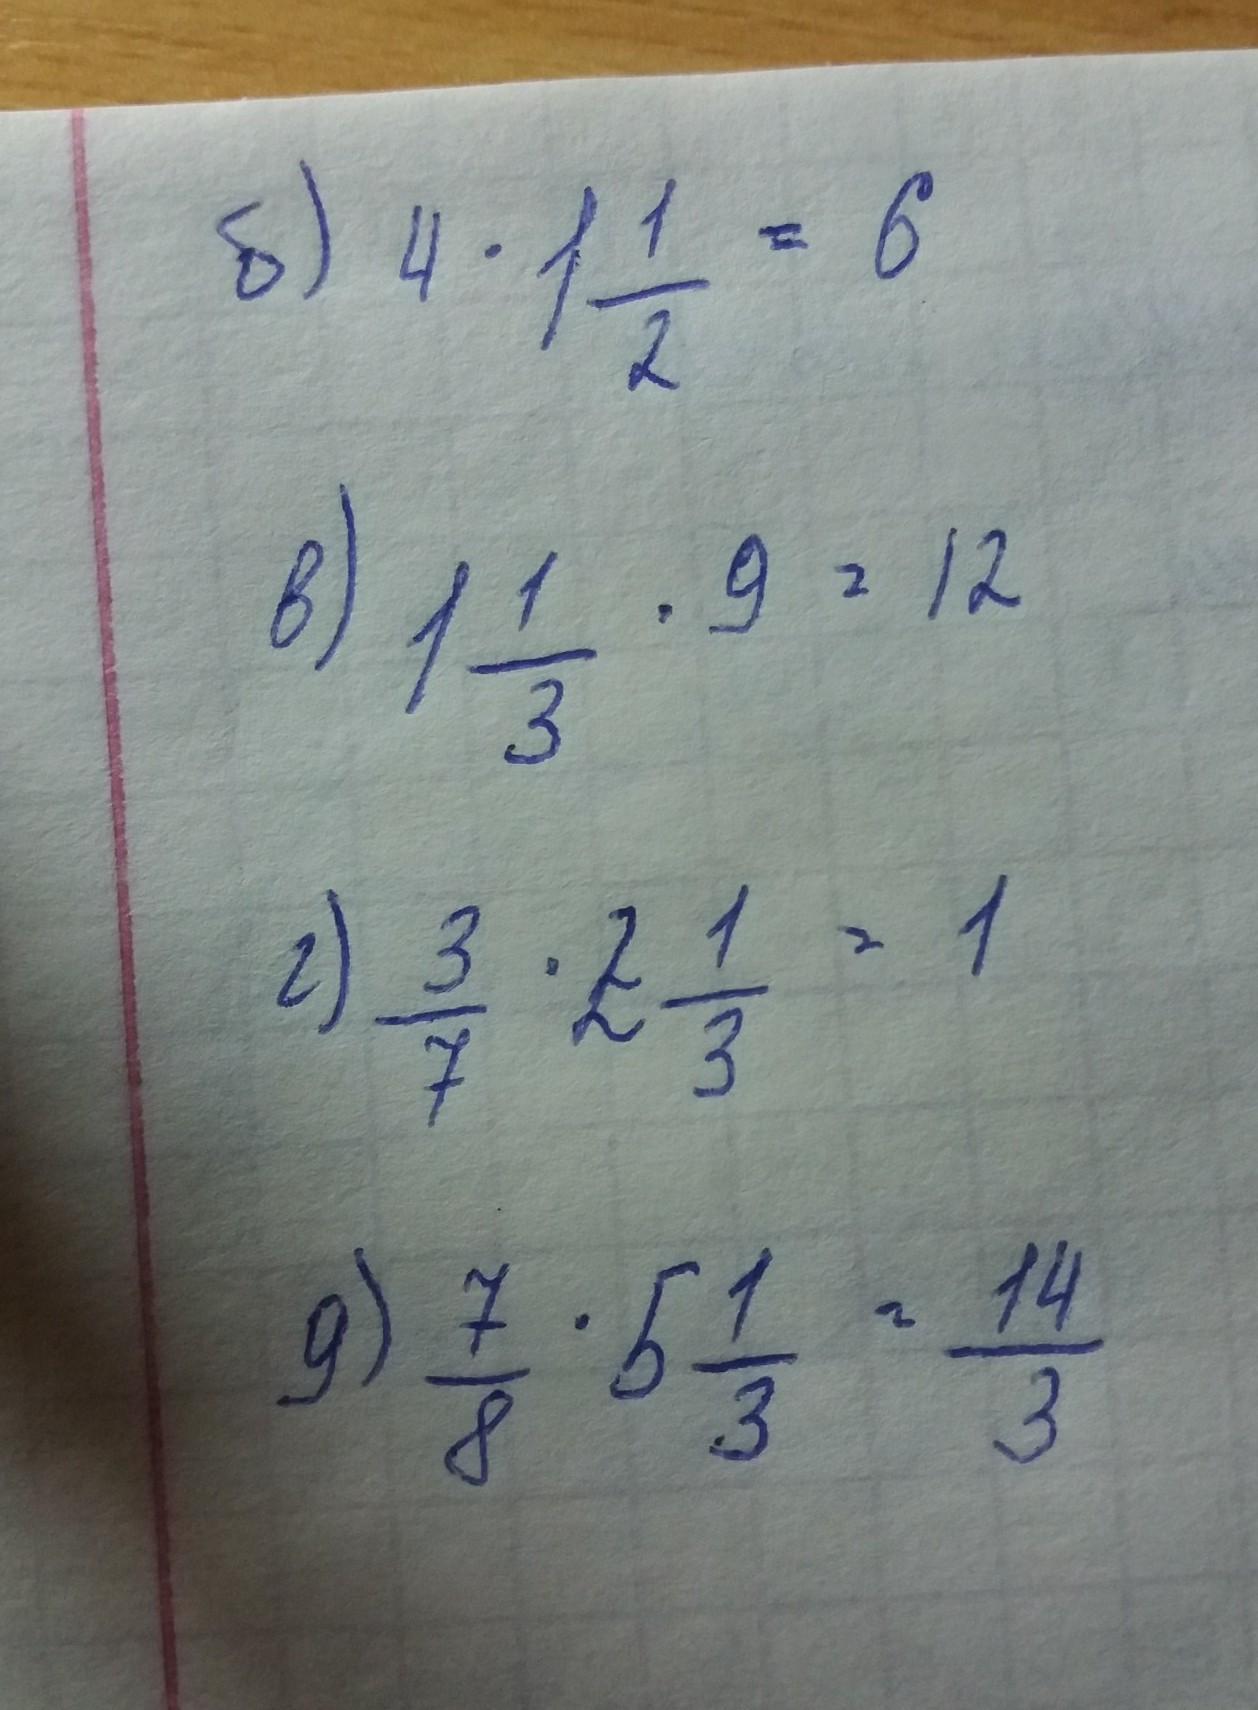 б) 4 · 1 1/2 = 6
в) 1 1/3 · 9 = 12
г) 3/7 · 2 1/3 = 1
д) 7/8 · 5 1/3 = 14/3